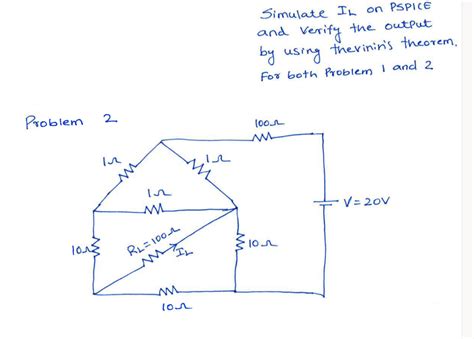 Simulate IL on PSPICE
and verify the output
by using thevinin's theorem.
For both Problem 1 and 2
Problem 2
100Ω
1Ω
1Ω
1Ω
V=20V
10Ω
RL=100Ω
IL
10Ω
10Ω